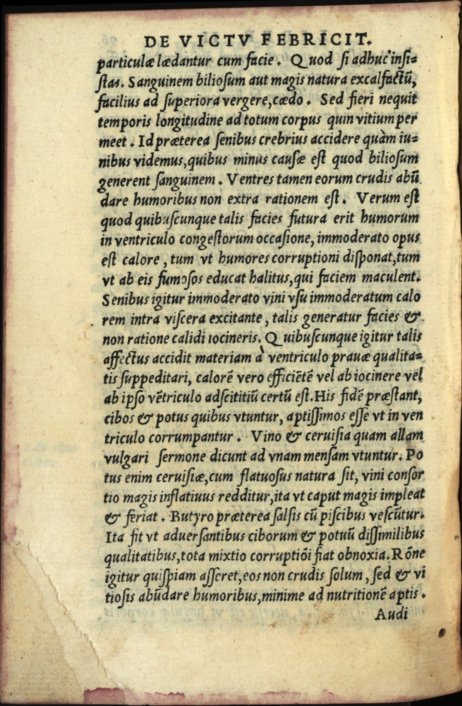 DE VICTV FEBRICIT.
particulæ lædantur cum facie. Quod si adhuc insi=
stas. Sanguinem biliosum aut magis natura excalfactū,
facilius ad superiora vergere, cædo. Sed fieri nequit
temporis longitudine ad totum corpus quin vitium per
meet. Id præterea senibus crebrius accidere quàm iu=
nibus videmus, quibus minus causæ est quod biliosum
generent sanguinem. Ventres tamen eorum crudis abū
dare humoribus non extra rationem est. Verum est
quod quibuscunque talis facies futura erit humorum
in ventriculo congestorum occasione, immoderato opus
est calore, tum vt humores corruptioni disponat, tum
vt ab eis fumosos educat halitus, qui faciem maculent.
Senibus igitur immoderato vini vsu immoderatum calo
rem intra viscera excitante, talis generatur facies &
non ratione calidi iocineris. Quibuscunque igitur talis
affectus accidit materiam à ventriculo prauæ qualita=
tis suppeditari, calorē vero efficiētē vel ab iocinere vel
ab ipso vētriculo adscititiū certū est. His fidē præstant,
cibos & potus quibus vtuntur, aptissimos esse vt in ven
triculo corrumpantur. Vino & ceruisia quam allam
vulgari sermone dicunt ad vnam mensam vtuntur. Po
tus enim ceruisiæ, cum flatuosus natura sit, vini consor
tio magis inflatiuus redditur, ita vt caput magis impleat
& feriat. Butyro præterea salsis cū piscibus vescūtur.
Ita fit vt aduersantibus ciborum & potuū dissimilibus
qualitatibus, tota mixtio corruptiōi fiat obnoxia. Rōne
igitur quispiam asseret, eos non crudis solum, sed & vi
tiosis abūdare humoribus, minime ad nutritionē aptis.
Audi